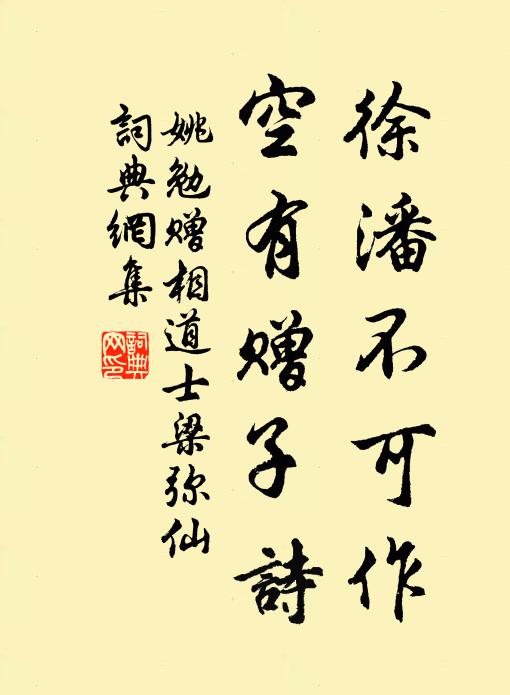 徐潘不可作
空有赠子詩
姚勉赠相道士梁弥仙
詞典網集
詞典網印